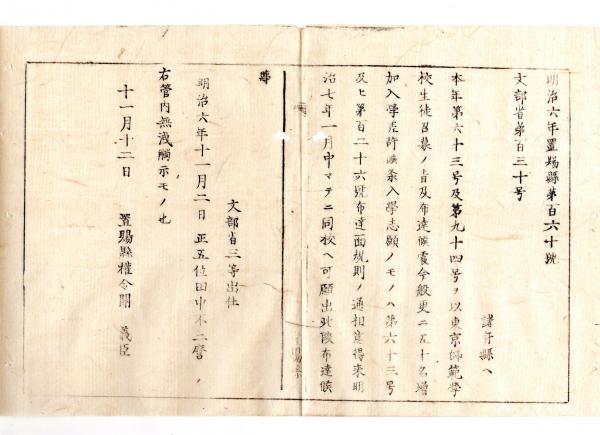 明治六年置賜縣第百六十號
文部省第百三十号
諸府縣ヘ
本年第六十三号及第九十四号ヲ以東京師範学
校生徒召募ノ旨及布達候處今般更ニ五十名増
加入学差許候条入学志願ノモノハ第六十三号
及ヒ第百二十六號布達面規則ノ通相意得来明
治七年一月中マテニ同校ヘ可願出此段布達候
事
文部省三等出仕
明治六年十一月二日 正五位田中不二麿
右管内無洩觸示モノ也
十一月十二日 置賜縣權令關 義臣